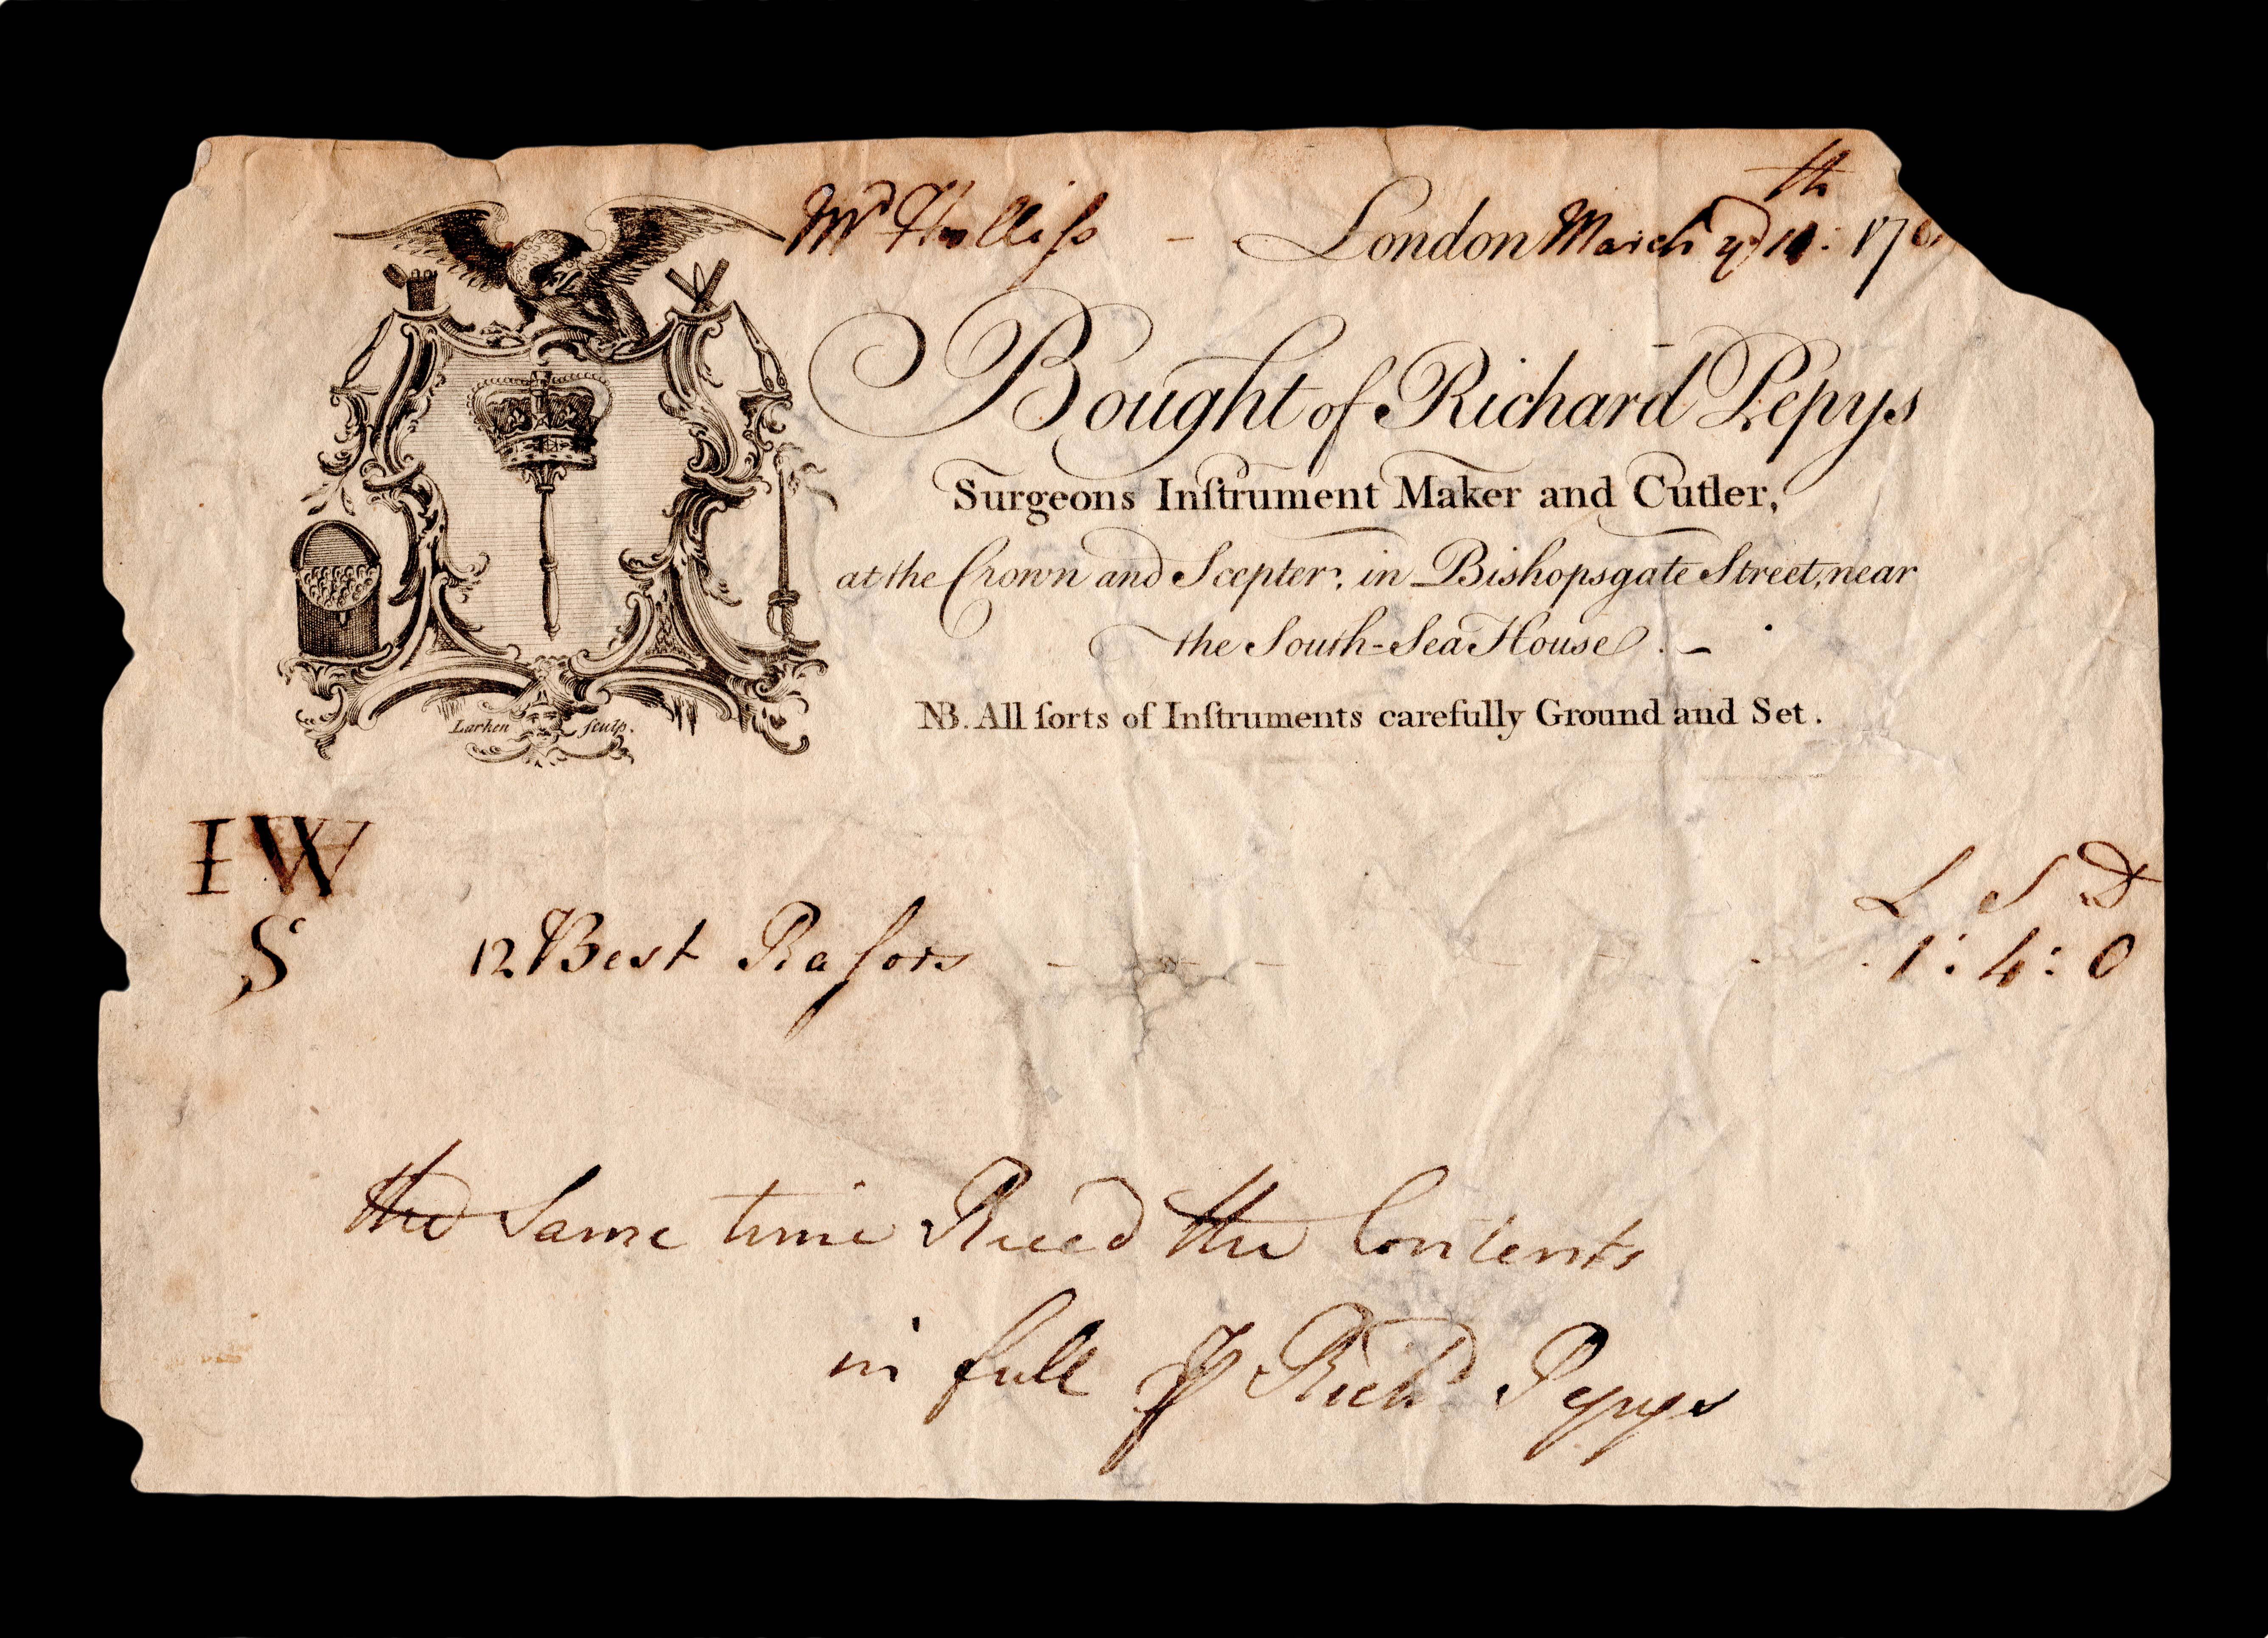 Mr Hollifs - London March ye 10th: 176
Bought of Richard Pepys
Surgeons Inſtrument Maker and Cutler,
at the Crown and Scepter, in Bishopsgate Street, near
the South-Sea House. -
NB. All ſorts of Inſtruments carefully Ground and Set.
Larken ſculp.
IW
S
L S D
12 Best Raſors - - - - - - 1: 4: 0
the Same time Recd the Contents
in full ⅌ Richd Pepys